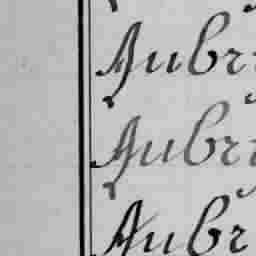 Aubri
Aubri
Aubr